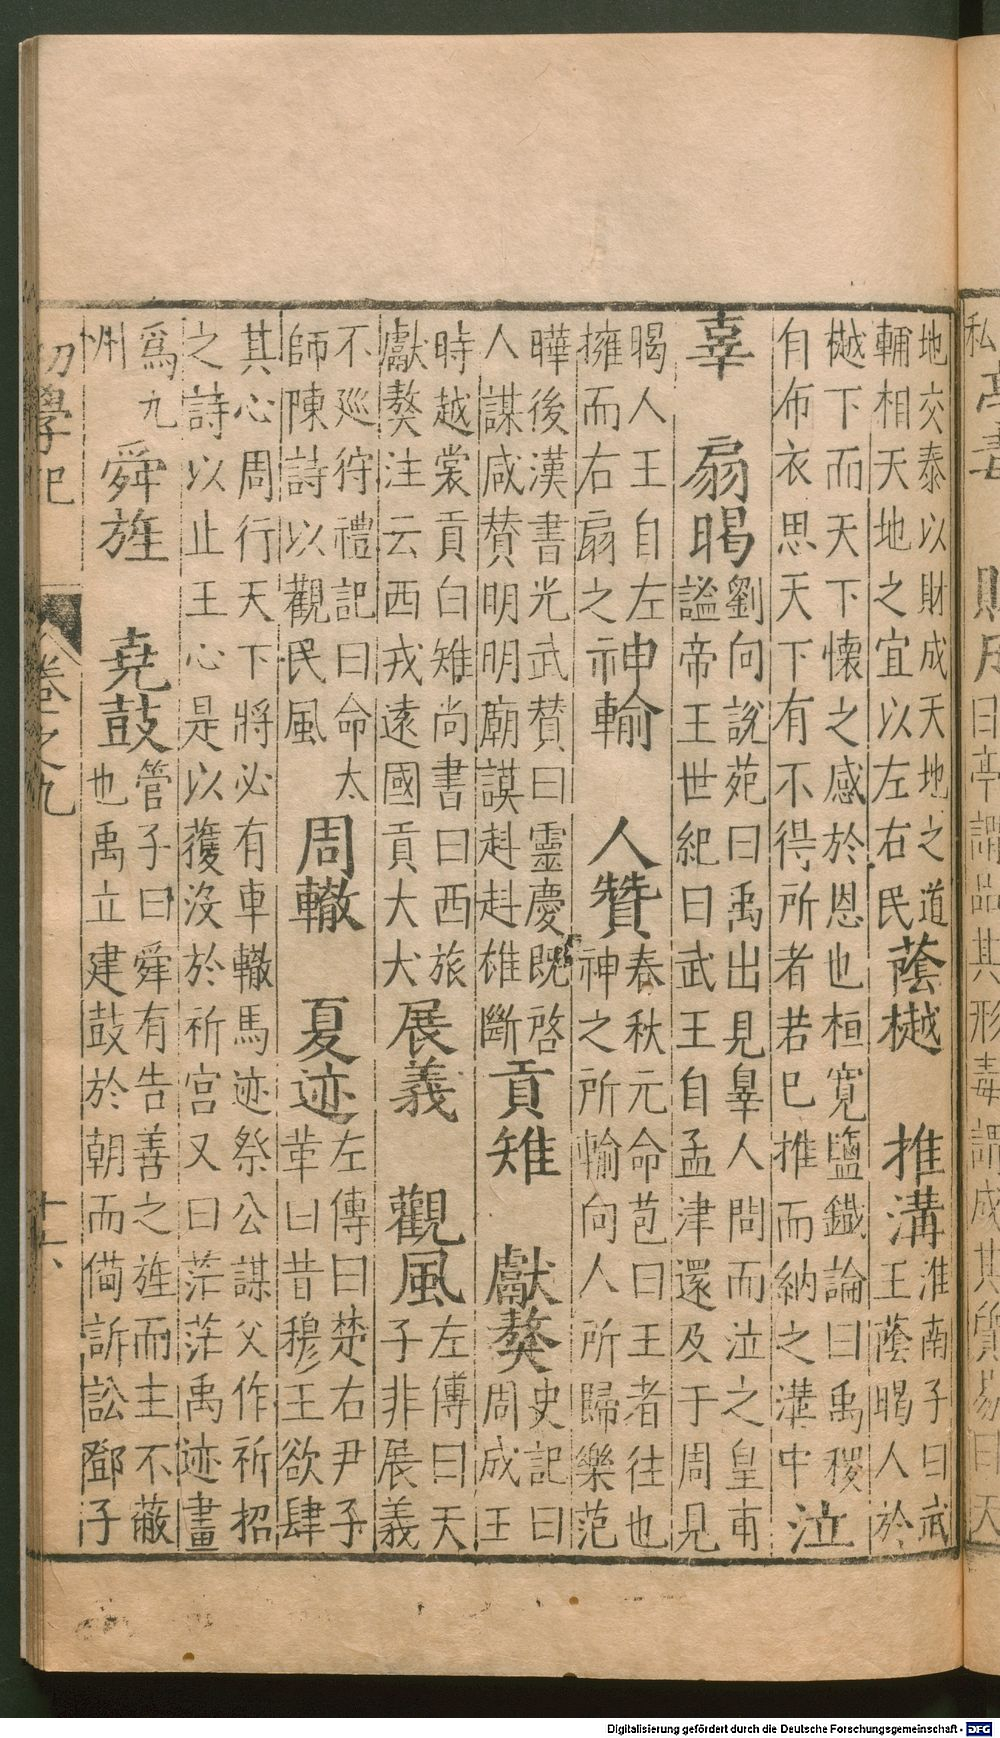 亭毒 曰亭謂品其形毒謂成其質易曰天
地交泰以財成天地之道
輔相天地之宜以左右民
蔭樾 推溝
淮南子曰武
王蔭暍人於
樾下而天下懷之感於恩也桓寛鹽鐵論曰禹稷
自布衣思天下有不得所者若已推而納之溝中
泣
辜 扇暍
劉向說苑曰禹出見辠人問而泣之皇甫
謐帝王世紀曰武王自孟津還及于周見
暍人王自左
擁而右扇之
神輸 人贊
春秋元命苞曰王者往也
神之所輸向人所歸樂范
曄後漢書光武贊曰靈慶既啓
人謀咸贊明明廟謨赳赳雄斷
貢雉 獻獒
史記曰
周成王
時越裳貢白雉尚書曰西旅
獻獒注云西戎遠國貢大犬
展義 觀風
左傳曰天
子非展義
不廵狩禮記曰命太
師陳詩以觀民風
周轍 夏迹
左傳曰楚右尹子
革曰昔穆王欲肆
其心周行天下將必有車轍馬迹祭公謀父作祈招
之詩以止王心是以獲没於祈宫又曰茫茫禹迹畫
爲九
州
舜旌 堯鼓
管子曰舜有告善之旌而主不蔽
也禹立建鼓於朝而備訴訟鄧子
初學記 卷之九 十六
Digitalisierung gefördert durch die Deutsche Forschungsgemeinschaft - DFG